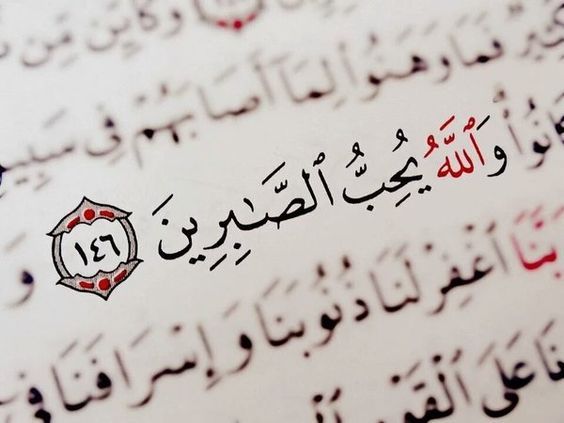 وَكَأَيِّن مِّن
كَثِيرٌ فَمَا وَهَنُوا۟ لِمَآ أَصَابَهُمْ فِى سَبِيلِ
كَانُوا۟ ۗ وَٱللَّهُ يُحِبُّ ٱلصَّـٰبِرِينَ ١٤٦ وَ
بَّنَا ٱغْفِرْ لَنَا ذُنُوبَنَا وَإِسْرَافَنَا فِىٓ
نَا عَلَى ٱلْقَوْمِ